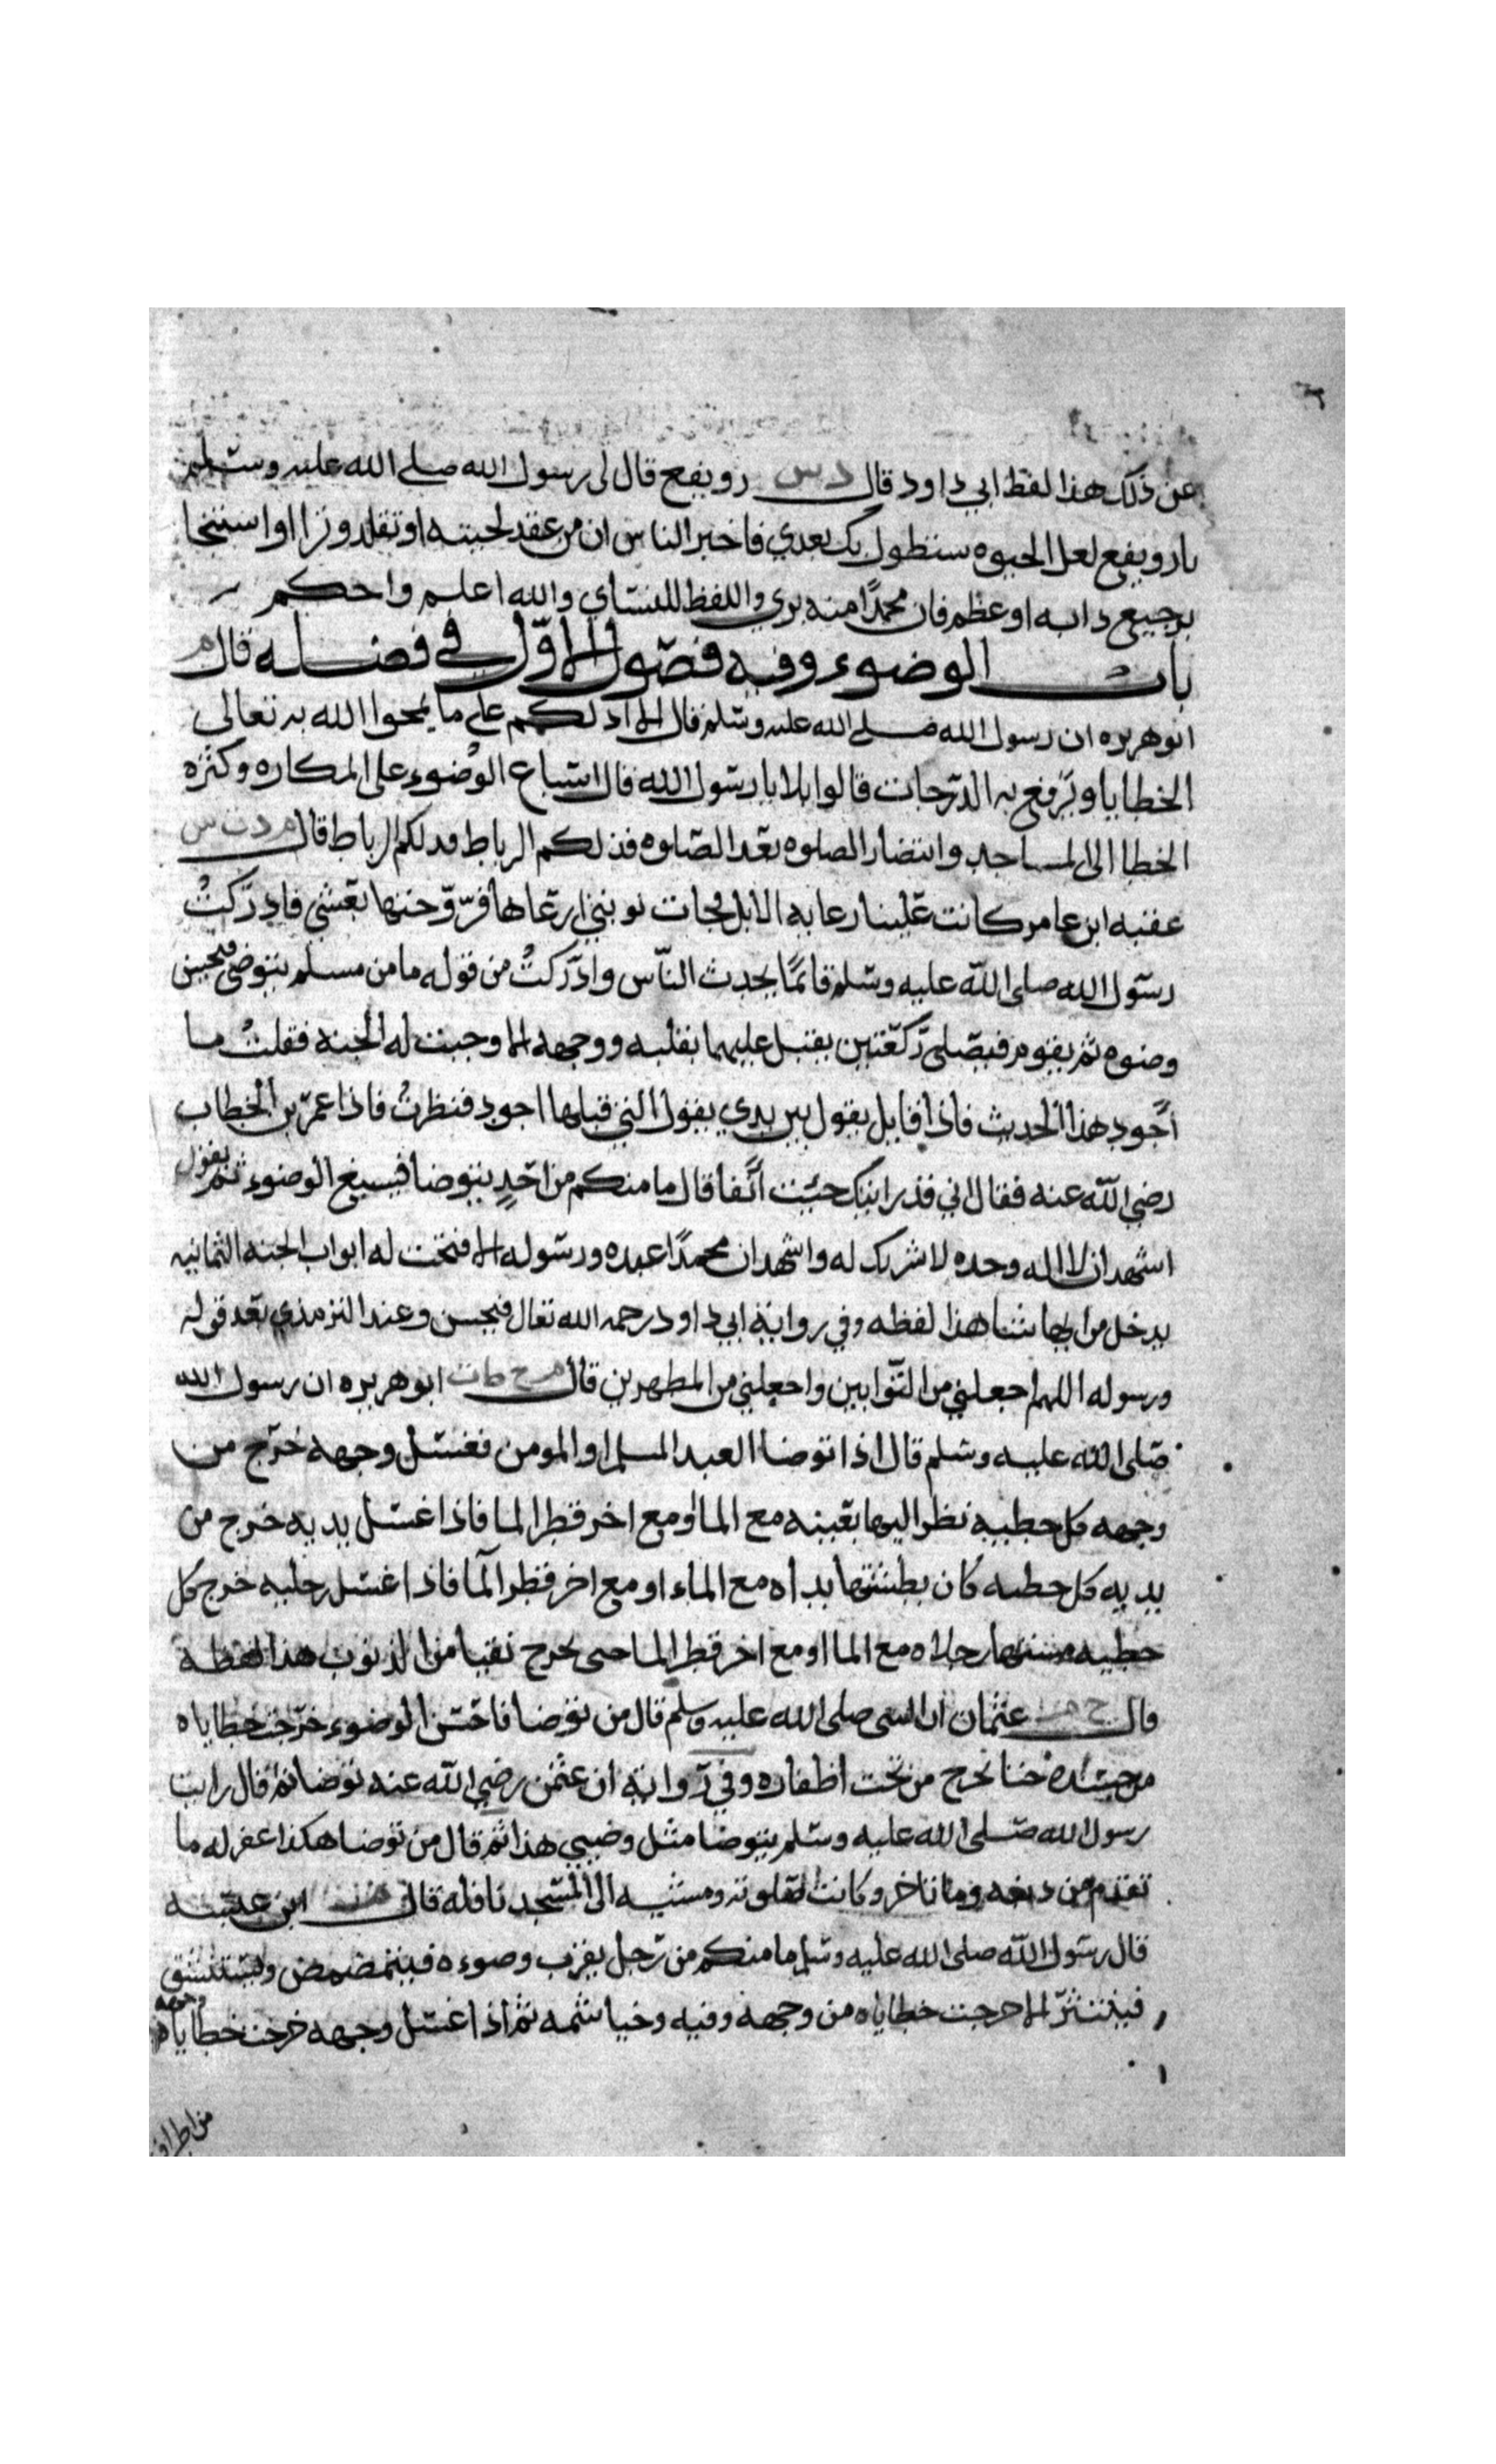 عن ذلك هذا لفظ ابي داود قال د س رويفع قال لى رسول الله صلى الله عليه وسلم
يا رويفع لعل الحيوه ستطول بك بعدي فاخبر الناس ان من عقد لحيته او تقلد وترا او استنجا
برجيع دابه او عظم فان محمدًا منه بري واللفظ للنساي والله اعلم واحكم
باب الوضوء وفيه فصول الاوّل في فضله قال م
ابو هريره ان رسول الله صلى الله عليه وسلم قال الا ادلكم على ما يمحوا الله به تعالى
الخطايا ويرفع به الدرجات قالوا بلا يا رسول الله قال اسباغ الوُضوء على المكاره وكثره
الخطا الى المساجد وانتضار الصلوه بعد الصلوه فذلكم الرباط فدلكم الرباط قال م د ت س
عقبه ابن عامر كانت علينا رعايه الابل فجات نوبتي ارعاها فروّحتها بعشي فادركتُ
رسول الله صلى الله عليه وسلم قائمًا يحدث النّاس وادركتُ من قوله ما من مسلم يتوضى فيحسن
وضوه ثم يقوم فيصلى ركعتين يقبل عليهما بقلبه ووجهه الا وجبت له الجنه فقلتُ ما
أجود هذا الحديث فاذا قايل يقول بين يدي يقول التي قبلها اجود فنظرتُ فاذا عمر بن الخطاب
رضي الله عنه فقال اني قد رايتك جئيت آنفا قال ما منكم من احدٍ يتوضا فيسبغ الوضوء ثم يقول
اشهد ان لا اله وحده لا شريك له واشهد ان محمدًا عبده ورسوله الا فتحت له ابواب الجنه الثمانيه
يدخل من ايها شا هذا لفظه وفي رواية ابي داود رحمه الله تعال فيحسن وعند الترمذي بعد قوله
ورسوله اللهم اجعلني من التوّابين واجعلني من المطهرين قال م ح ط ت ابو هريره ان رسول الله
صلى الله عليه وسلم قال اذا توضا العبد المسلم او المومن فغسل وجهه خرج من
وجهه كل خطييه نظر اليها بعينه مع الما او مع اخر قطر الما فاذا غسل يديه خرج من
يديه كل خطيه كان بطشتها يداه مع الماء او مع اخر قطر الما فاذا اغسل رجليه خرج كل
خطيه مشتها رجلاه مع الما او مع اخر قطر الما حتى يخرج نقيا من الذنوب هذا لفظه
قال ح م عثمان ان النبى صلى الله عليه وسلم قال من توضا فاحسن الوضوء خرجت خطاياه
من جسده حتا تخرج من تحت اظفاره وفي رواية ان عثمن رضي الله عنه توضا ثم قال رايت
رسول الله صلى الله عليه وسلم يتوضا مثل وضيي هذا ثم قال من توضا هكذا غفر له ما
تقدم من ذنبه وما تاخر وكانت صلوته ومشيه الى المسجد نافله قال ابن عبسه
قال رسول الله صلى الله عليه وسلم ما منكم من رجل يقرب وضوءه فيتمضمض ويستنشق
فينتثر الا خرجت خطاياه من وجهه وفيه وخياشمه ثم اذا اغسل وجهه خرجت خطايا وجهه
من اطراف